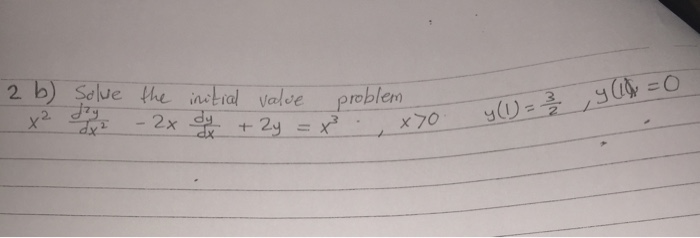 2 b) Solve the initial value problem
x² d²y/dx² - 2x dy/dx + 2y = x³ , x>0 y(1) = 3/2 , y(1) = 0